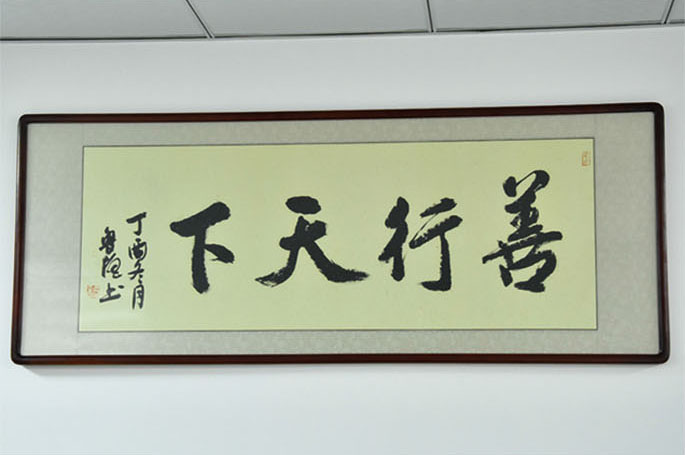 善行天下
丁酉冬月
書